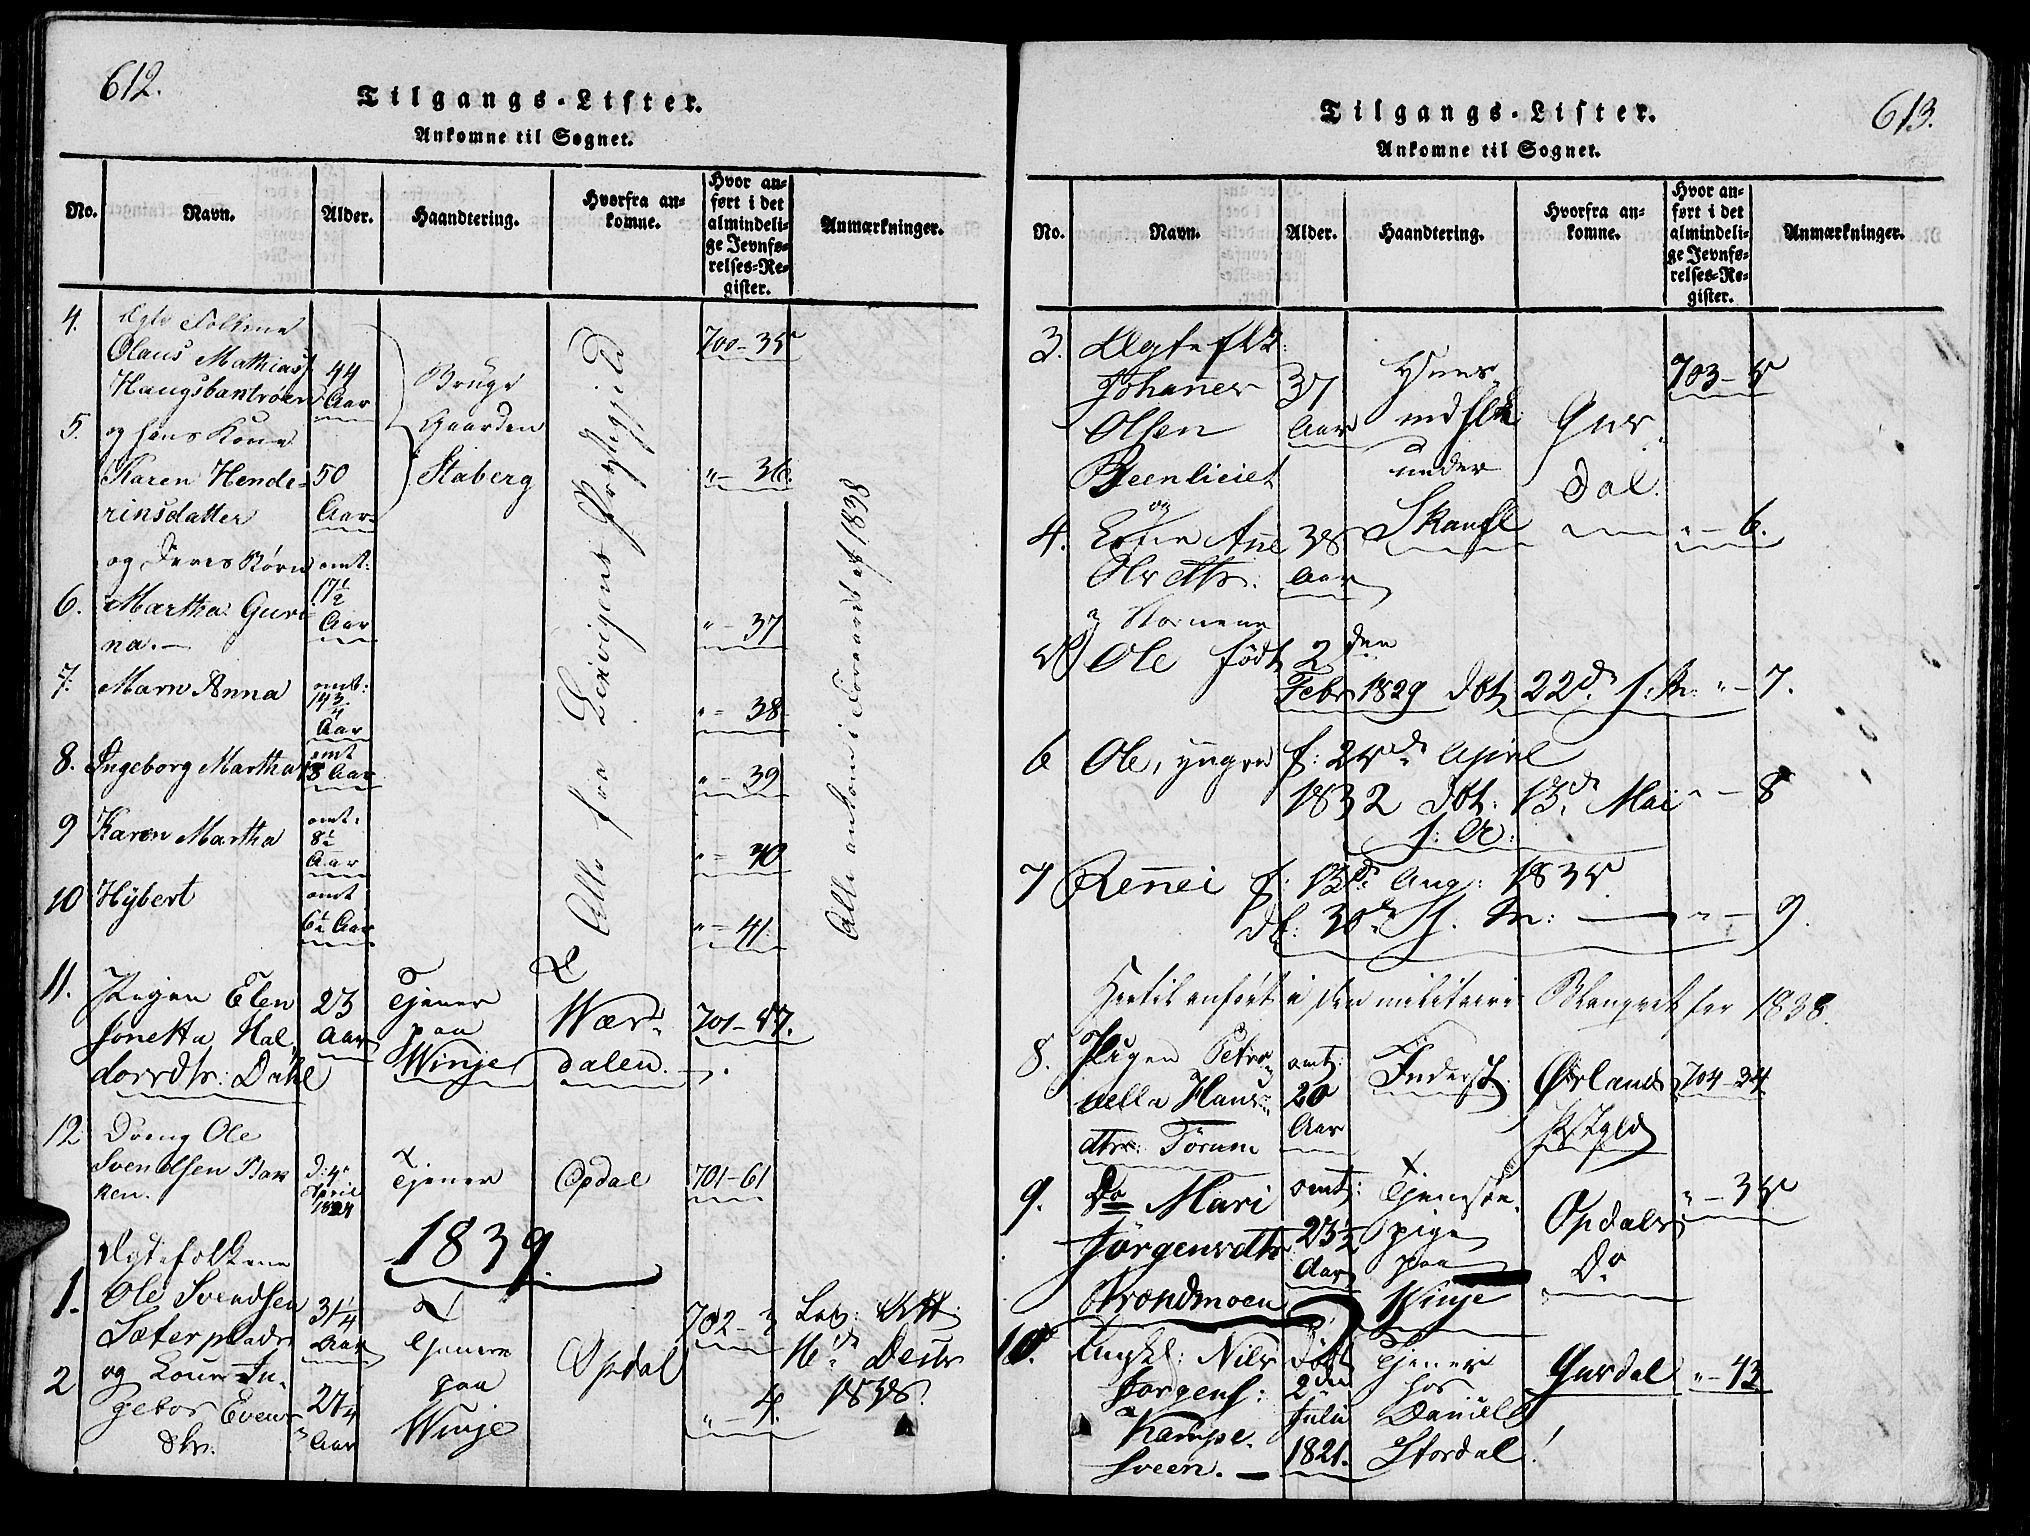 612.
Tilgangs-Lister.
Ankomne til Sognet.
No.
Navn.
Alder.
Haandtering.
Hvorfra an-
komne.
Hvor an-
ført i det
almindeli-
ge Jevnfø-
relses-Re-
gister.
Anmærkninger.
4.
Ægte Folkene
Olaus Mathias
Haugsbantrøen
44
Aar
Bruge
Gaarden
Staberg
700-35
5.
og hans Kone
Karen Hende-
rinsdatter
50
Aar
"-36.
og deres Børn
omt:
6.
Martha Guri-
na.-
17½
Aar
"-37
7.
Marn Anna
omt:
14¾
Aar
"-38
8.
Ingeborg Martha
omt
13 Aar
"-39
9
Karen Martha
omt:
8½
Aar
"=40
10
Hybert
omt
6½ Aar
"=41.
Alle fra Lexvigens Præstegjeld
Alle ankom i Foraaret af 1838
11.
Pigen Elen
Jonetta Hal-
dorsdtr: Dahl
23
Aar
Tjener
paa
Winje
Wær-
dalen.
701-57.
12
Dreng Ole
Svendsen Bak
ken.
d: 4
April
1824
Tjener
Opdal
701-61
1839.
Ægtefolkene
1.
Ole Svendsen
Sæterplads
31¼
Aar
Tjenere
paa
Winje
Opdal
702-3
Lev: Att:
16de Decbr
1838.
2
og Kone In-
gebor Evens-
dtr.
27¼
Aar
"-4.
613.
Tilgangs-Lister.
Ankomne til Sognet.
No.
Navn.
Alder.
Haandtering.
Hvorfra an-
komne.
Hvor an-
ført i det
almindeli-
ge Jevnfø-
relses-Re-
gister.
Anmærkninger.
3.
Ægtefolk:
Johannes
Olsen
37
Aar
Huus
under
Skaufl
dal.
703-5
og
4.
Kone Ane
Olsdtr:
38
Aar
"-6.
og Børnene
5
Ole født 2den
Febr 1829 døbt 22d s: M: "-7.
6
Ole, yngre f: 25de April
1832 døbt: 13de Mai "-8
s: A:
7
Rennei f: 13de Aug: 1835
db: 30de s. M: - "-9.
Hertil anført i den militaire Blanquet for 1838.
8.
Pigen Petro-
nella Hans-
dtr: Tørum
omt:
20
Aar
Inderst
Ørlands
704-34
9.
Do Mari
Jørgensdtr
Strøndmoen
omt:
23½
Aar
Tjeneste
pige
paa
Winje
Opdals
Do
"-35
10.
Ungkl: Niels
Jørgens:
Kampe-
sveen.-
født
2den
Julii
1821.
Tjener
hos
Daniell
Stordal
"-43